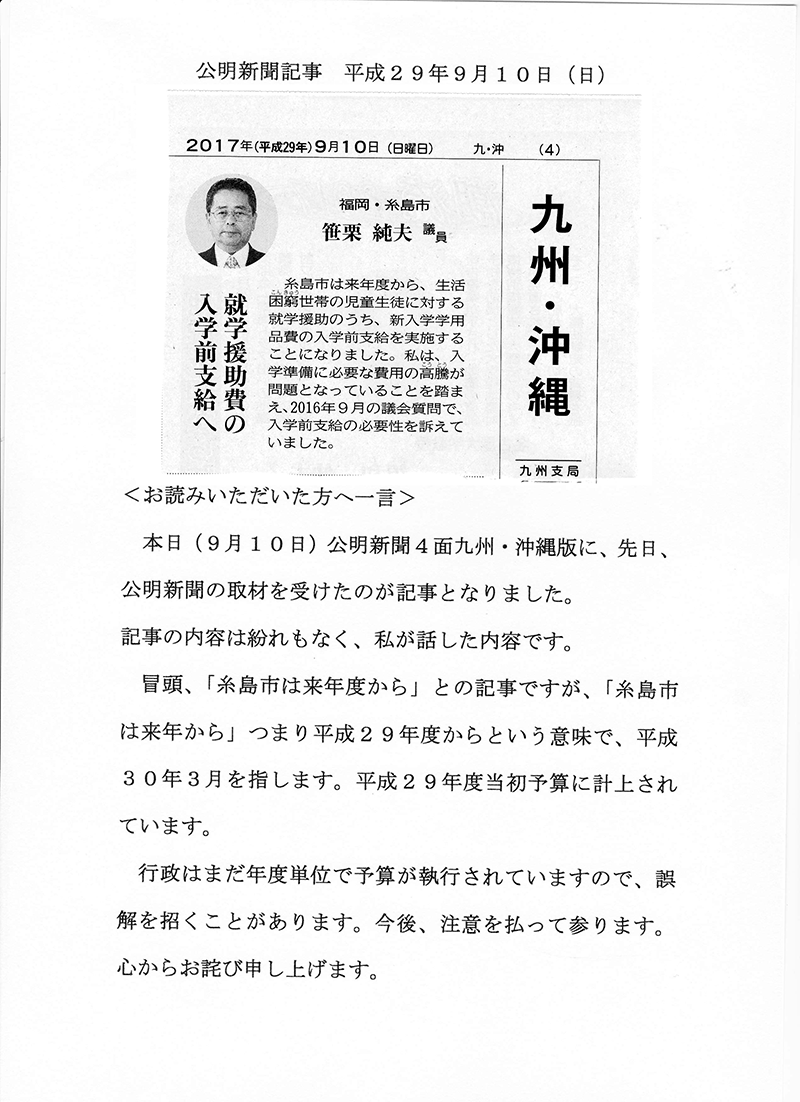 公明新聞記事　平成２９年９月１０日（日）
2017年(平成29年)９月１０日（日曜日）　九・沖　(4)
九州・沖縄
福岡・糸島市
笹栗 純夫 議員
就学援助費の
入学前支給へ
糸島市は来年度から、生活
困窮世帯の児童生徒に対する
就学援助のうち、新入学学用
品費の入学前支給を実施する
ことになりました。私は、入
学準備に必要な費用の高騰が
問題となっていることを踏ま
え、2016年９月の議会質問で、
入学前支給の必要性を訴えて
いました。
九州支局
＜お読みいただいた方へ一言＞
本日（９月１０日）公明新聞４面九州・沖縄版に、先日、
公明新聞の取材を受けたのが記事となりました。
記事の内容は紛れもなく、私が話した内容です。
冒頭、「糸島市は来年度から」との記事ですが、「糸島市
は来年から」つまり平成２９年度からという意味で、平成
３０年３月を指します。平成２９年度当初予算に計上され
ています。
行政はまだ年度単位で予算が執行されていますので、誤
解を招くことがあります。今後、注意を払って参ります。
心からお詫び申し上げます。